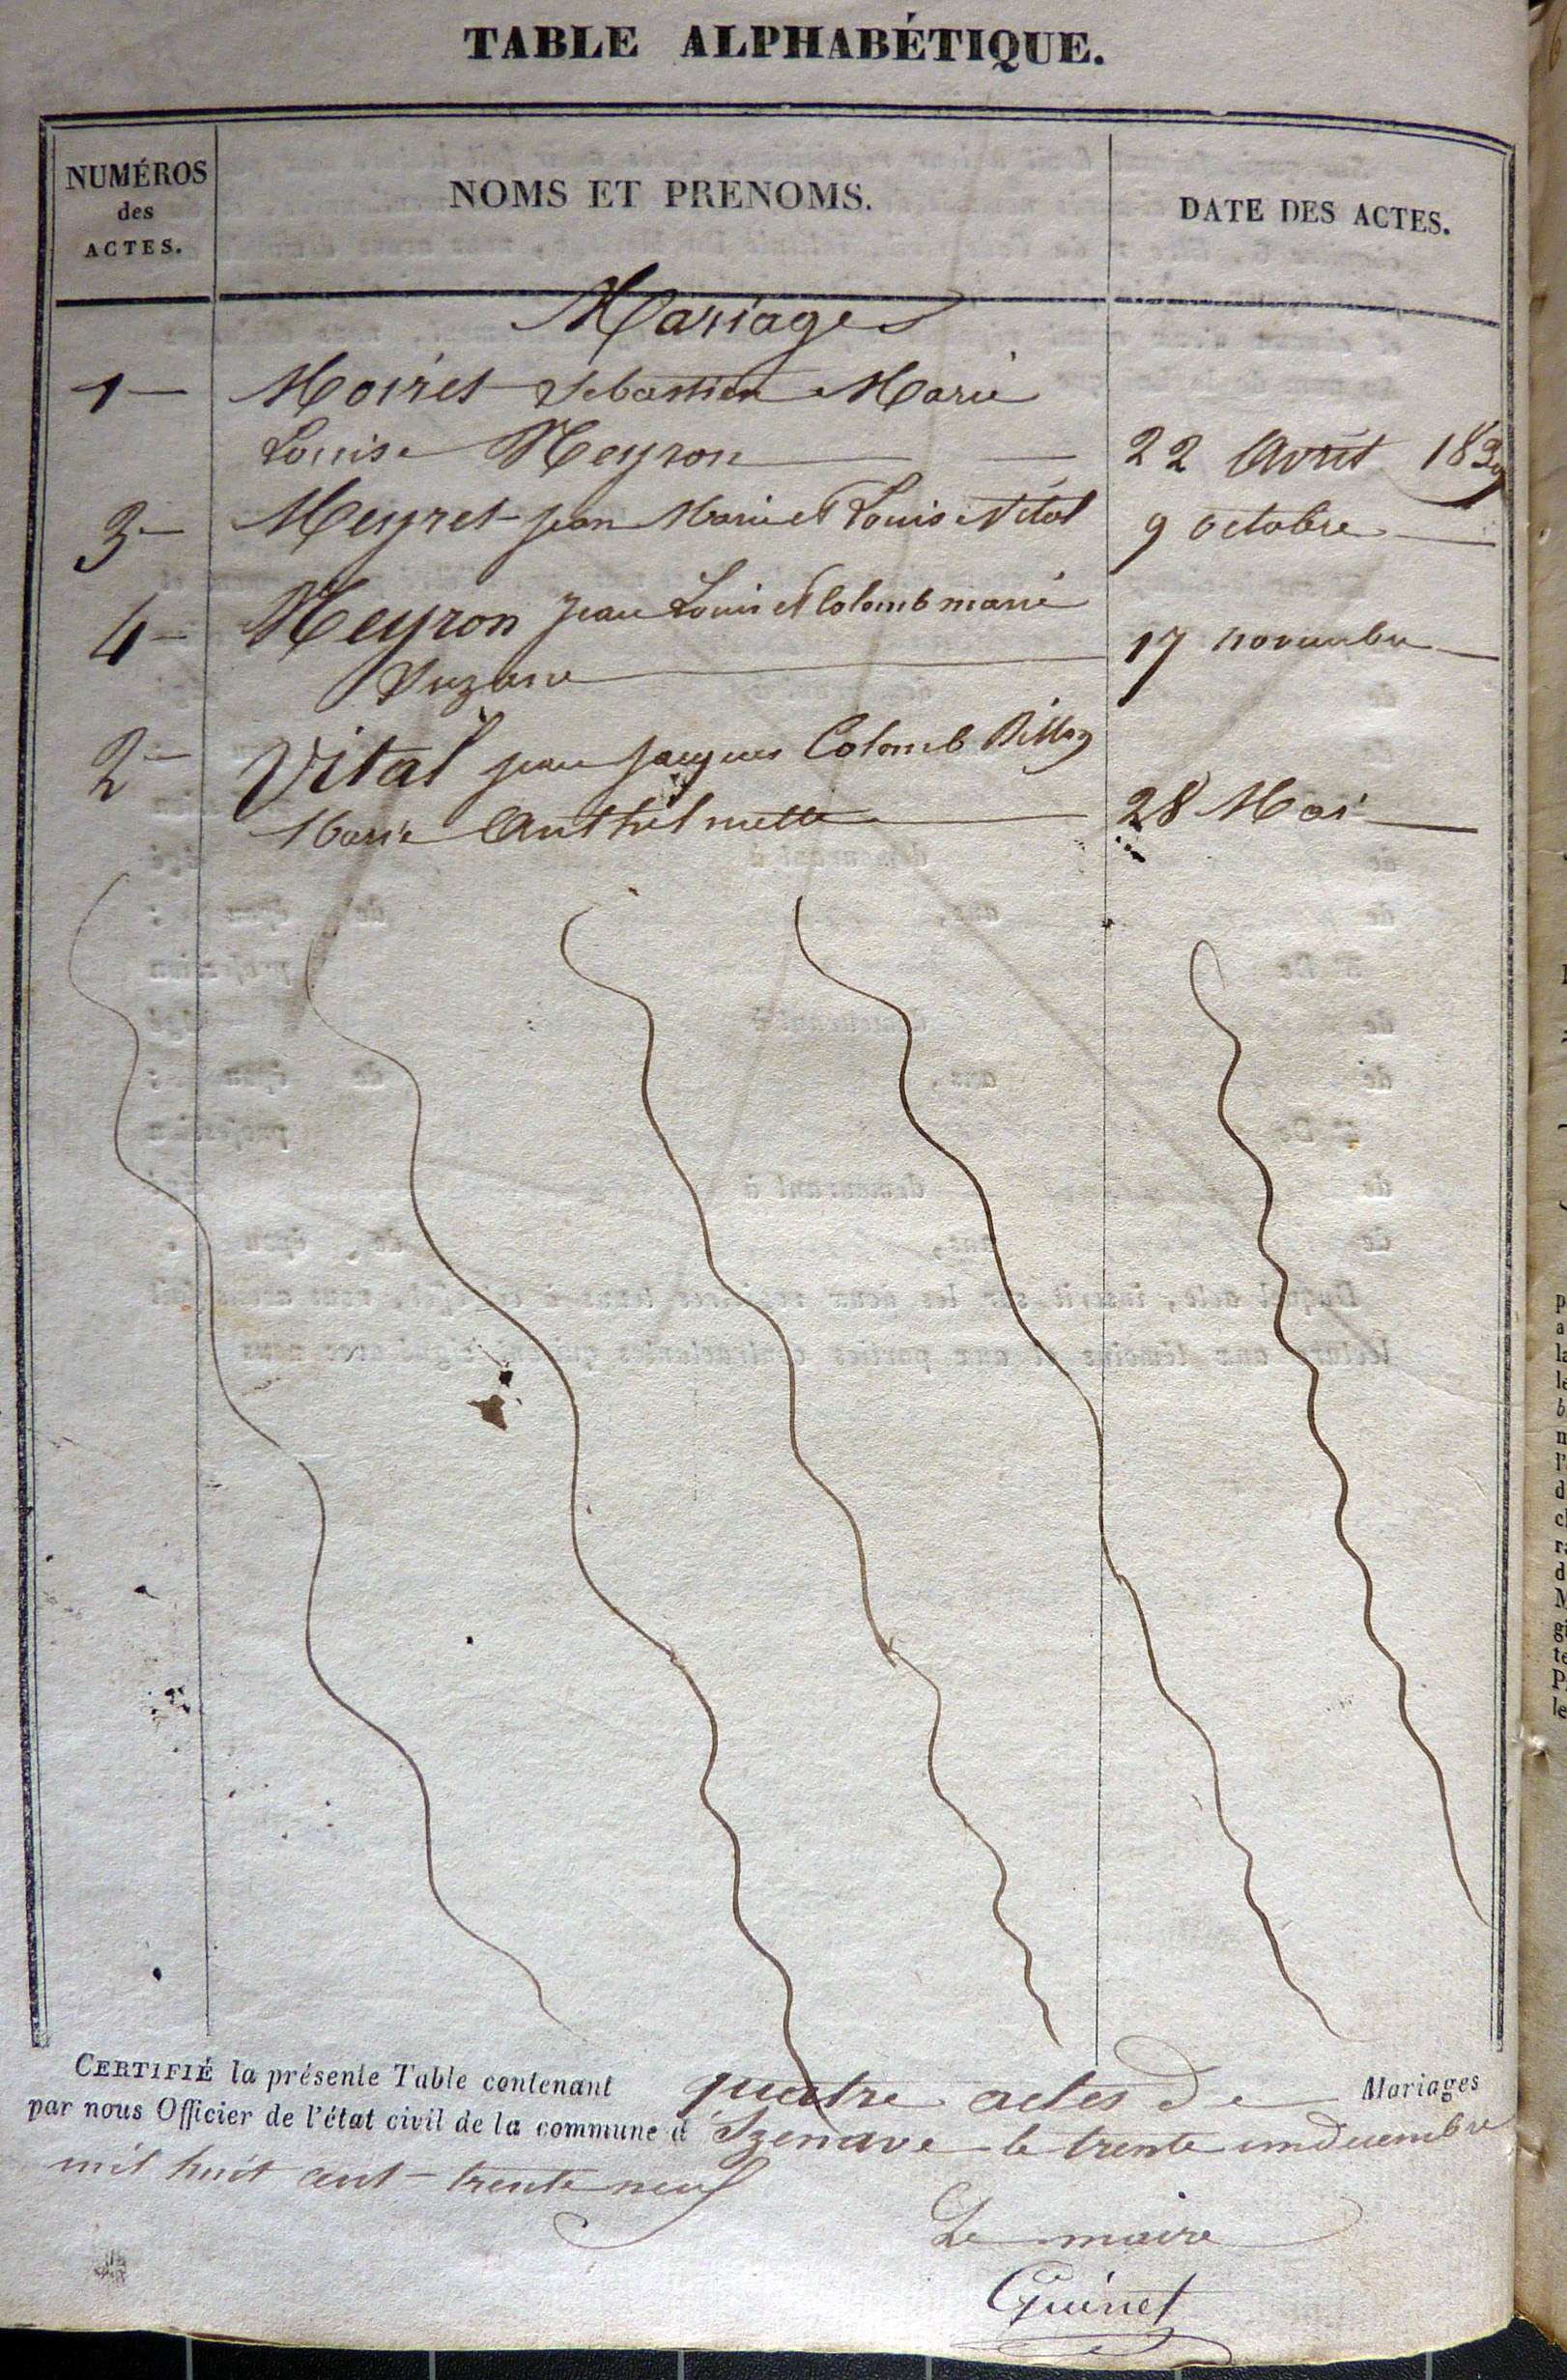 TABLE ALPHABÉTIQUE.
NUMÉROS
des
ACTES.
NOMS ET PRENOMS.
DATE DES ACTES.
Mariages
1 — Moiret Sebastien Marie
Louise Meyron — — 22 Avril 1839
3 — Meyret jean Marie et Louise Vital 9 octobre —
4 — Meyron Jean Louis et Colomb marie
Suzane — 17 novembre —
2 — Vital jean jacques Colomb Billon
Marie Anthelmette — 28 Mai —
CERTIFIÉ la présente Table contenant quatre actes de Mariages
par nous Officier de l'état civil de la commune d'Izenave le trente un decembre
mil huit cent trente neuf
Le maire
Guinet